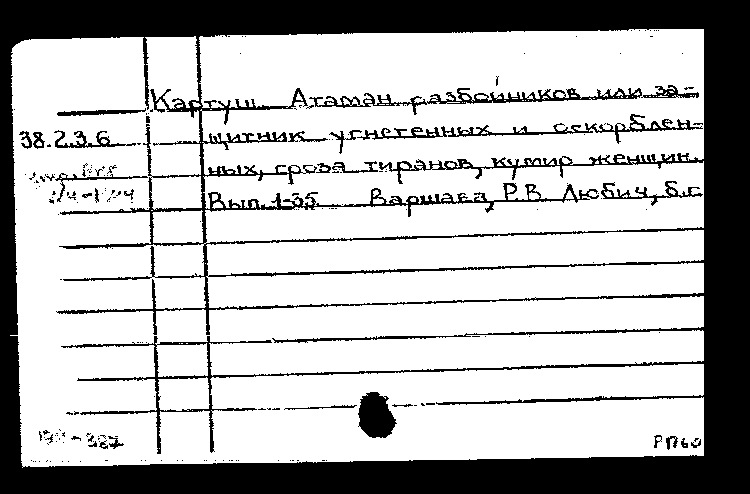 Картуш. Атаман разбойников или за-
38.2.3.6 щитник угнетенных и оскорблен-
ных, гроза тиранов, кумир женщин.
Вып. 1-35 Варшава, Р.В. Любич, б.г.
РП60